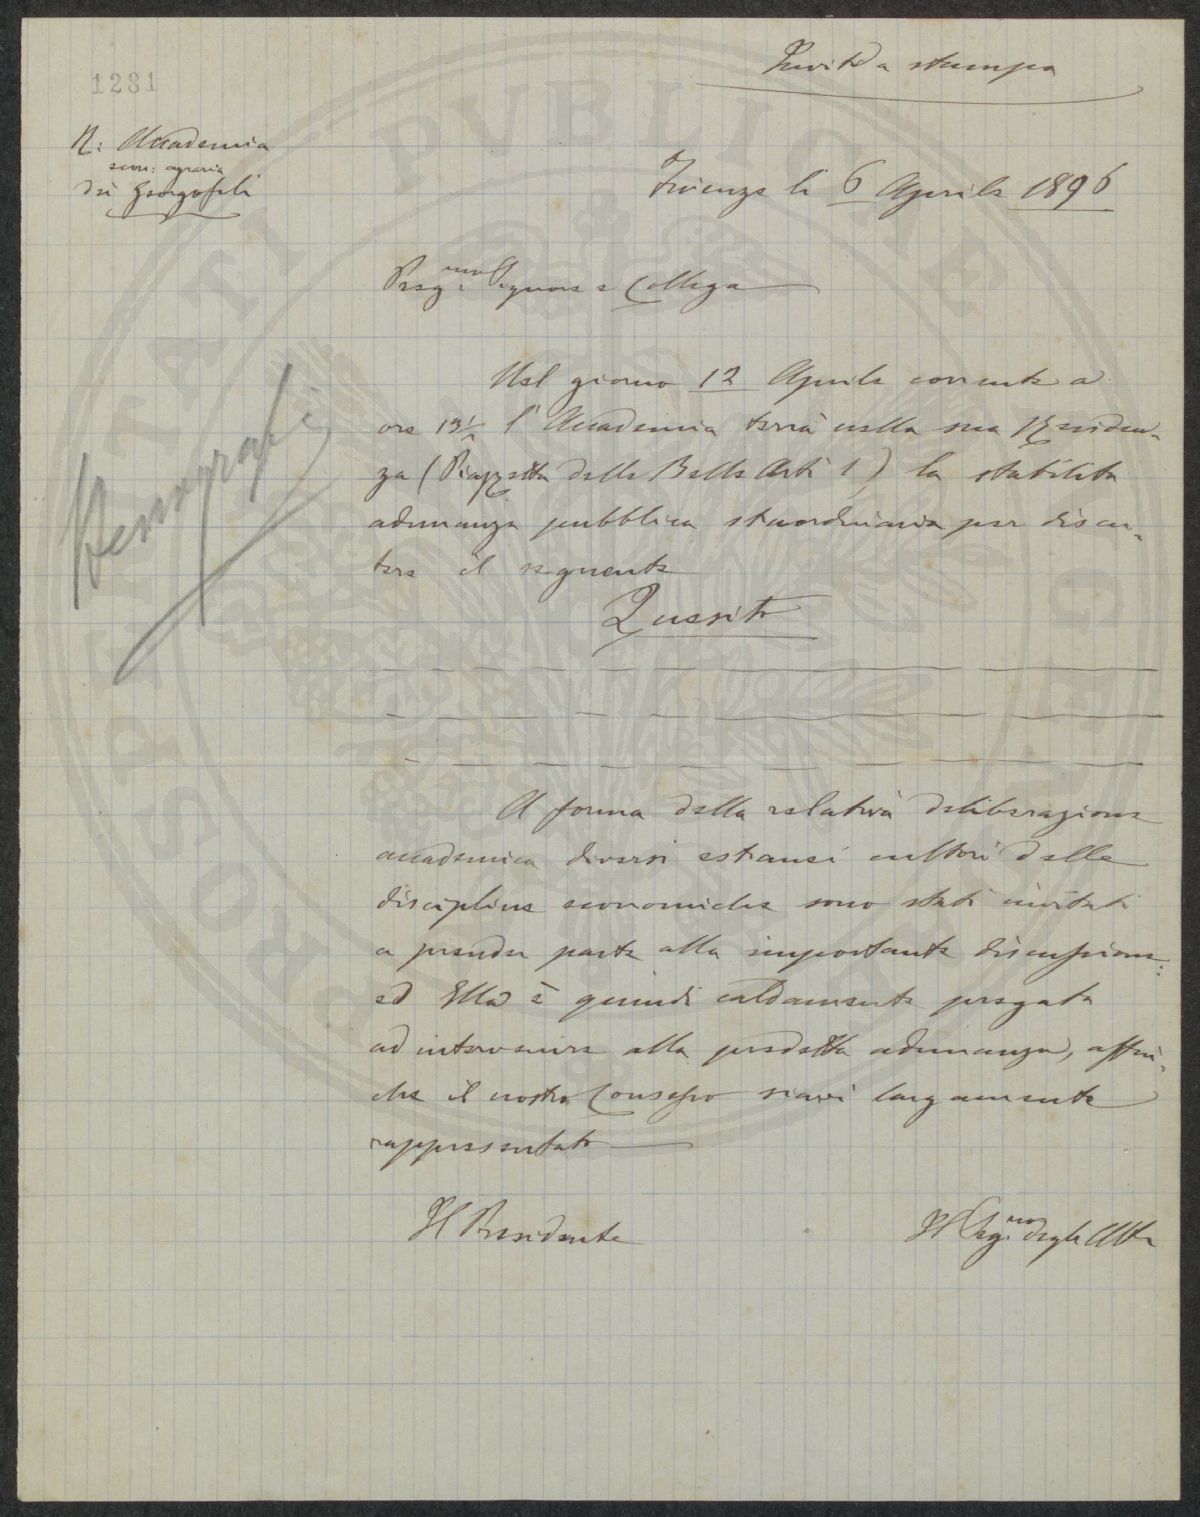 Invito a stampa
1281
R: Accademia
econ: agraria
dei Georgofili
Firenze li 6 Aprile 1896
Preg.mo Signore e Collega
Nel giorno 12 Aprile corrente a
ore 13½ l'Accademia terrà nella sua Residen-
za (Piazzetta delle Belle Arti 1) la stabilita
adunanza pubblica straordinaria per discu-
tere il seguente
Quesito
A forma della relativa deliberazione
accademica diversi estranei cultori delle
discipline economiche sono stati invitati
a prender parte alla importante discussione:
ed Ella è quindi caldamente pregata
ad intervenire alla predetta adunanza, affin-
che il nostro Consesso siavi largamente
rappresentato
Il Presidente
Il Seg.rio degli Atti
PUBLICAE